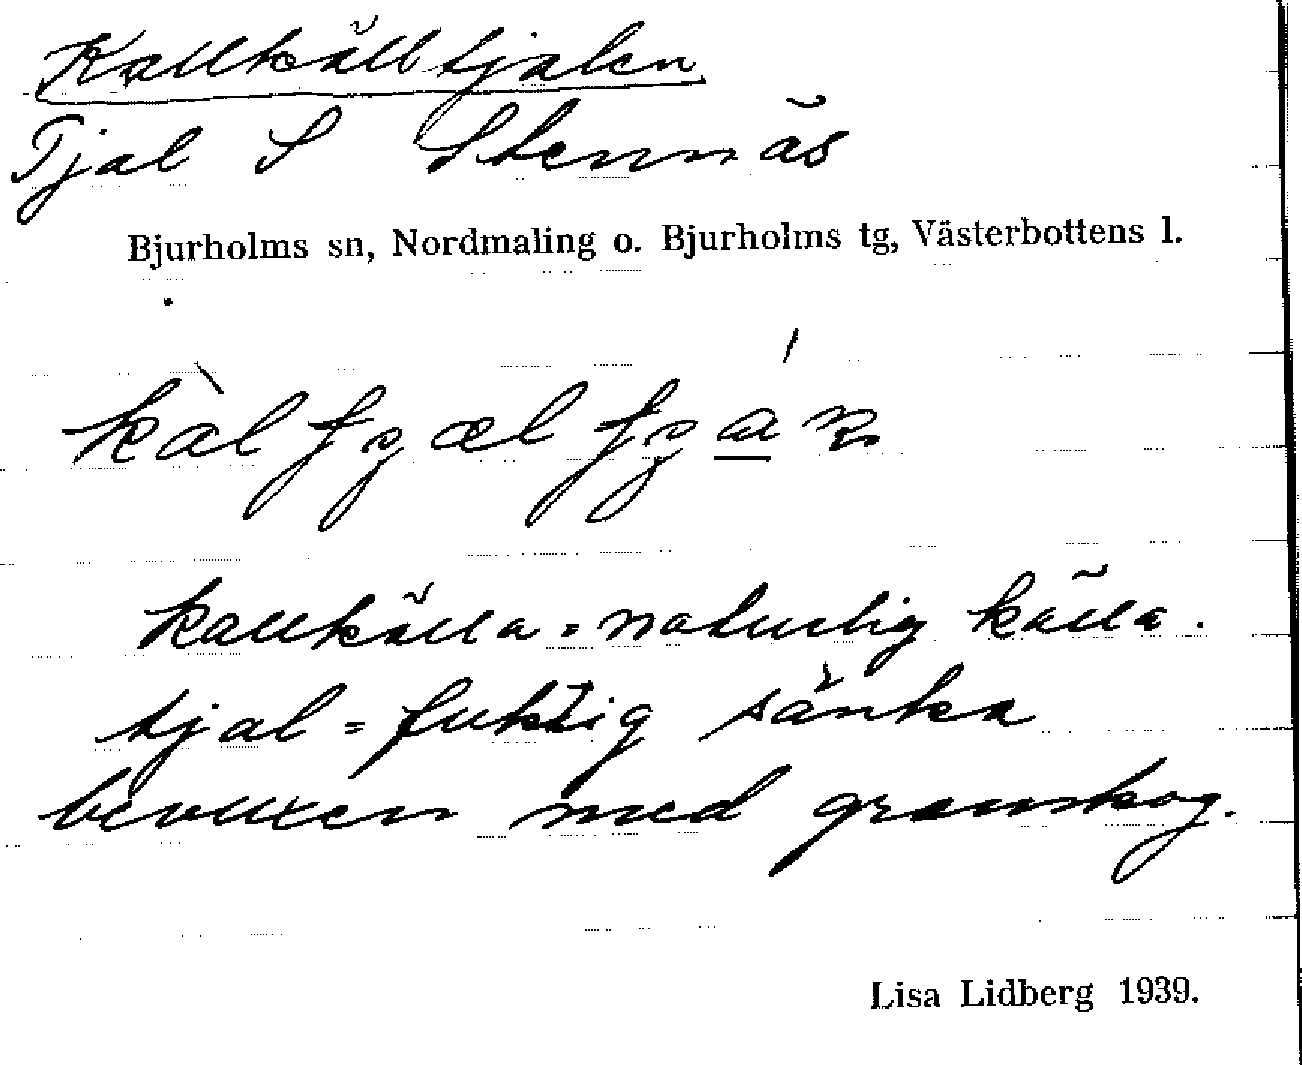 Kallkälltjalen
Tjal S Stennäs
Bjurholms sn, Nordmaling o. Bjurholms tg, Västerbottens l.
kallkälla = naturlig källa.
tjal = fuktig sänka
bevuxen med granskog.
Lisa Lidberg 1939.